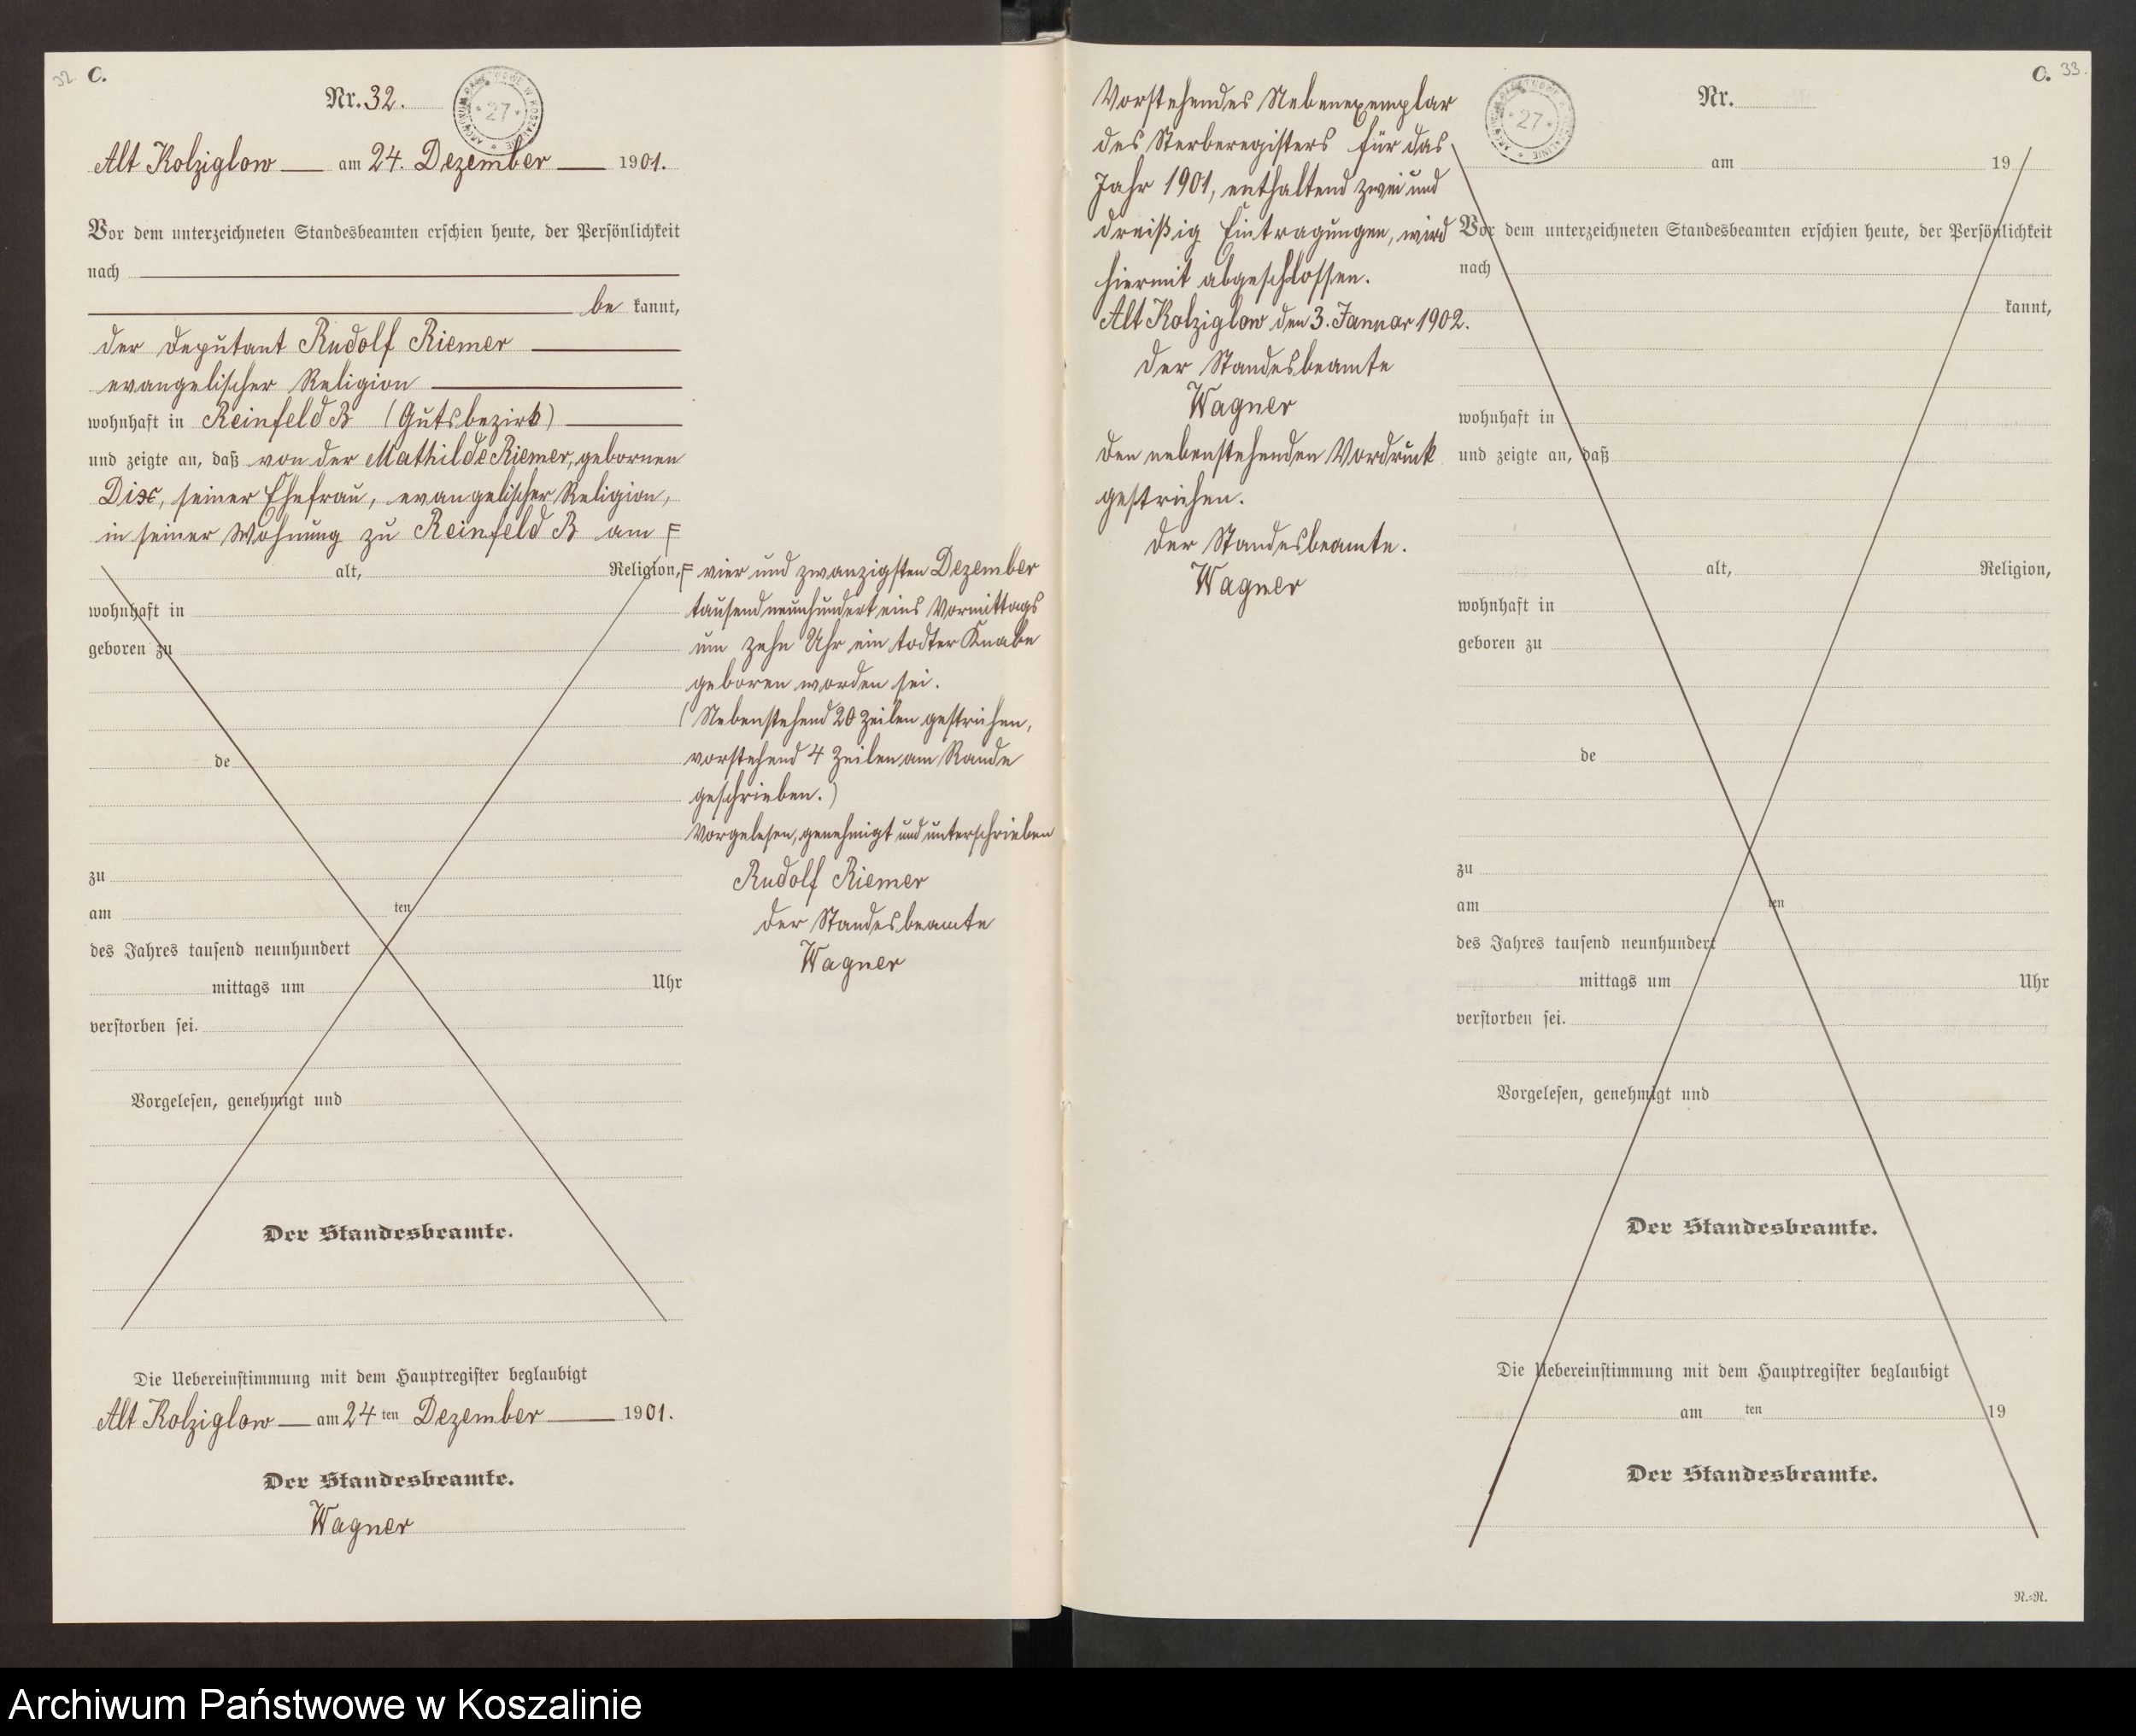 32.
C.
Nr. 32.
ARCHIWUM PAŃSTWOWE W KOSZALINIE
* 27 *
Alt Kolziglow am 24. Dezember 1901.
Vor dem unterzeichneten Standesbeamten erschien heute, der Persönlichkeit
nach
be kannt,
der Deputant Rudolf Riemer
evangelischer Religion
wohnhaft in Reinfeld B (Gutsbezirk)
und zeigte an, daß von der Mathilde Riemer, gebornen
seiner Ehefrau, evangelischer Religion,
in seiner Wohnung zu Reinfeld B am F
alt, Religion,
wohnhaft in
geboren zu
de
zu
am ten
des Jahres tausend neunhundert
mittags um Uhr
verstorben sei.
Vorgelesen, genehmigt und
Der Standesbeamte.
F vier und zwanzigsten Dezember
tausend neunhundert eins Vormittags
um zehn Uhr ein todter Knabe
geboren worden sei.
(Nebenstehend 20 Zeilen gestrichen,
vorstehend 4 Zeilen am Rande
geschrieben.)
Vorgelesen, genehmigt und unterschrieben
Rudolf Riemer
Der Standesbeamte
Wagner
Die Uebereinstimmung mit dem Hauptregister beglaubigt
Alt Kolziglow am 24 ten Dezember 1901.
Der Standesbeamte.
Wagner
Vorstehendes Nebenexemplar
des Sterberegisters für das
Jahr 1901, enthaltend zwei und
dreißig Eintragungen, wird
hiermit abgeschlossen.
Alt Kolziglow den 3. Januar 1902.
Der Standesbeamte
Wagner
Den nebenstehenden Vordruck
gestrichen.
Der Standesbeamte.
Wagner
C. 33.
ARCHIWUM PAŃSTWOWE W KOSZALINIE
* 27 *
Nr.
am 19
Vor dem unterzeichneten Standesbeamten erschien heute, der Persönlichkeit
nach
kannt,
wohnhaft in
und zeigte an, daß
alt, Religion,
wohnhaft in
geboren zu
de
zu
am ten
des Jahres tausend neunhundert
mittags um Uhr
verstorben sei.
Vorgelesen, genehmigt und
Der Standesbeamte.
Die Uebereinstimmung mit dem Hauptregister beglaubigt
am ten 19
Der Standesbeamte.
R.=R.
Archiwum Państwowe w Koszalinie